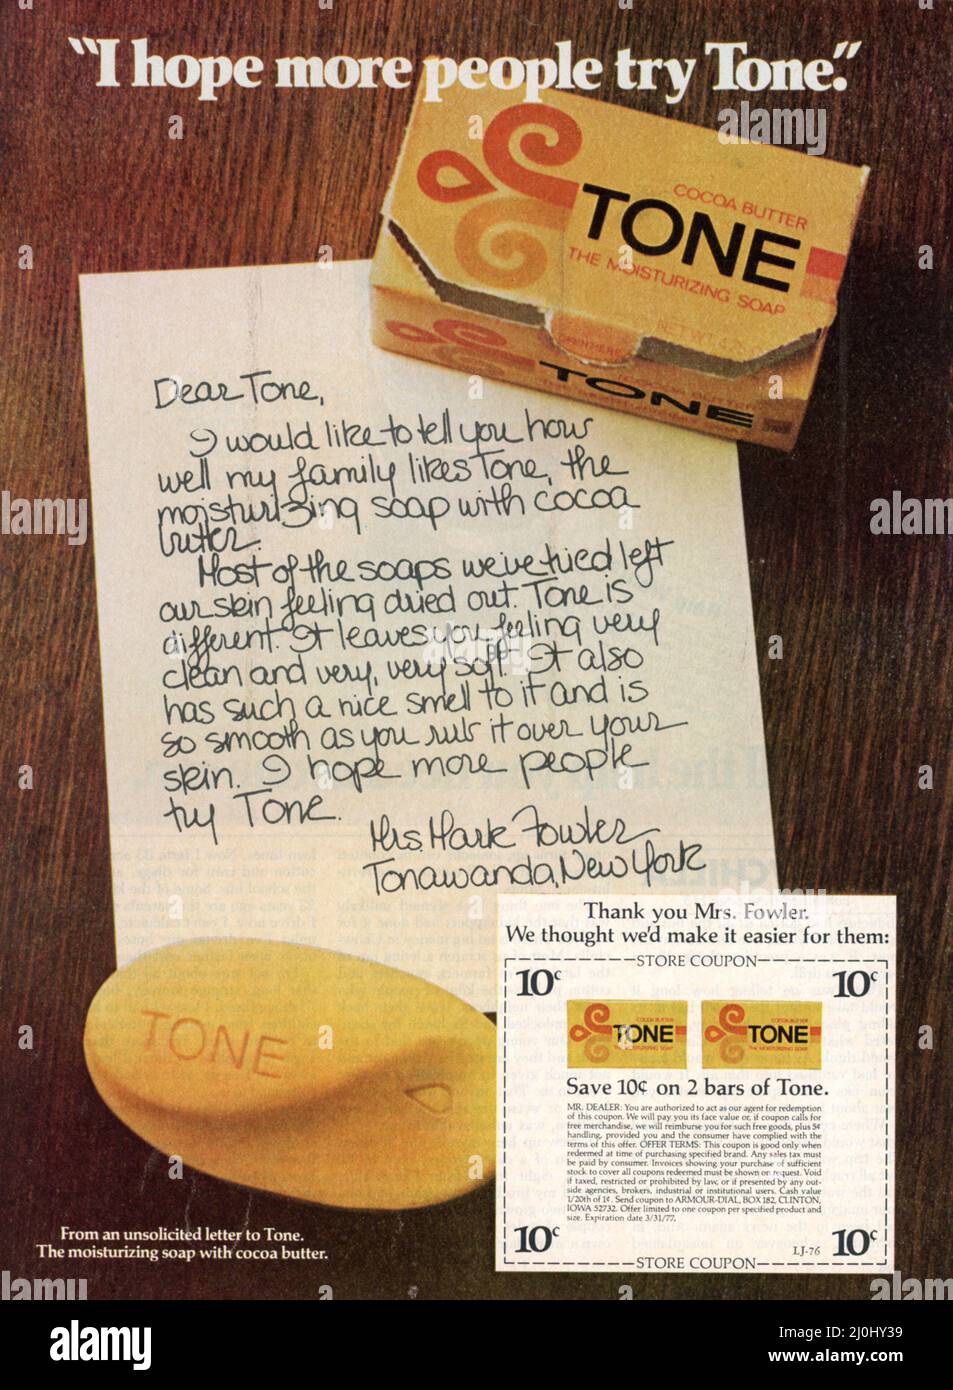 “I hope more people try Tone.”
COCOA BUTTER
TONE
THE MOISTURIZING SOAP
NET WT. 4.75
OPEN HERE
TONE
Dear Tone,
I would like to tell you how
well my family likes Tone, the
moisturizing soap with cocoa
butter.
Most of the soaps we've tried left
our skin feeling dried out. Tone is
different. It leaves you feeling very
clean and very, very soft. It also
has such a nice smell to it and is
so smooth as you rub it over your
skin. I hope more people
try Tone.
Mrs. Mark Fowler
Tonawanda, New York
TONE
From an unsolicited letter to Tone.
The moisturizing soap with cocoa butter.
Thank you Mrs. Fowler.
We thought we'd make it easier for them:
STORE COUPON
10¢ 10¢
COCOA BUTTER
TONE
THE MOISTURIZING SOAP
COCOA BUTTER
TONE
THE MOISTURIZING SOAP
Save 10¢ on 2 bars of Tone.
MR. DEALER: You are authorized to act as our agent for redemption
of this coupon. We will pay you its face value or, if coupon calls for
free merchandise, we will reimburse you for such free goods, plus 5¢
handling, provided you and the consumer have complied with the
terms of this offer. OFFER TERMS: This coupon is good only when
redeemed at time of purchasing specified brand. Any sales tax must
be paid by consumer. Invoices showing your purchase of sufficient
stock to cover all coupons redeemed must be shown on request. Void
if taxed, restricted or prohibited by law, or if presented by any out-
side agencies, brokers, industrial or institutional users. Cash value
1/20th of 1¢. Send coupon to ARMOUR-DIAL, BOX 182, CLINTON,
IOWA 52732. Offer limited to one coupon per specified product and
size. Expiration date 3/31/77.
10¢ LJ-76 10¢
STORE COUPON
alamy
Image ID: 2J0HY39
www.alamy.com